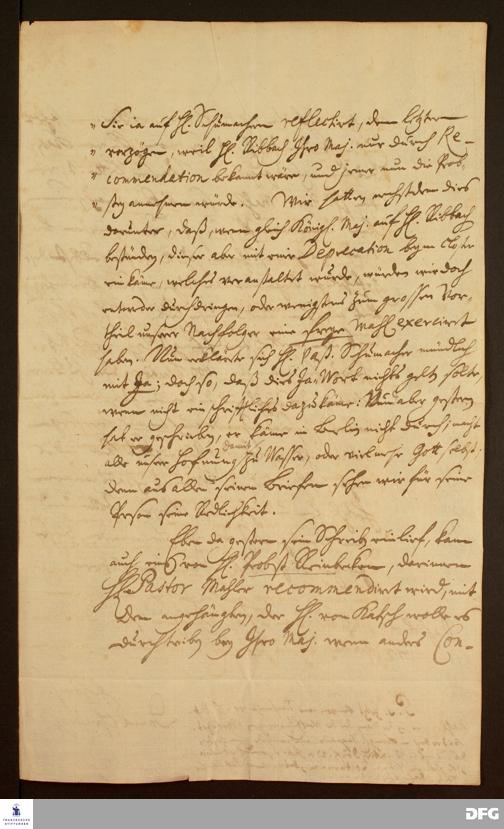 " Sie ja auf H. Schumachern reflectirt, dem letztern
" vorzögen, weil H. Ribbach Ihro Maj. nur durch Re-
" commendation bekannt wäre, und jener nun die Prob-
" stey annehmen würde. Wir hatten nechstdem dies
darunter, daß, wenn gleich Königl. Maj. auf H. Ribbach
bestünden, dieser aber mit einer Deprecation beym
ein käme, welches veranstaltet wurde, würden wir doch
entweder durchdringen, oder wenigstens zum grossen Vor-
theil unserer Nachfolger eine freye Wahl exerciret
haben. Nun erklärte sich H. Past. Schumacher mündlich
mit Ja; doch so, daß dies Ja-Wort nichts gelten solte,
wenn nicht ein schriftliches dazu käme: Nun aber gestern
hat er geschrieben, er käme in Berlin nicht durch, macht
alle unsere Hofnung damit zu Wasser, oder vielmehr Gott selbst;
denn aus allen seinen Briefen sehen wir für seine
Person seine Redlichkeit.
Eben da gestern sein Schreiben einlief, kam
auch eins von H. Probst Reinbecken, darinnen
H. Pastor Mahler recommendirt wird, mit
dem angehängten, der H. von Katsch wolle es
durchtreiben bey Ihro Maj. wenn anders Con-
FRANCKESCHE STIFTUNGEN
DFG